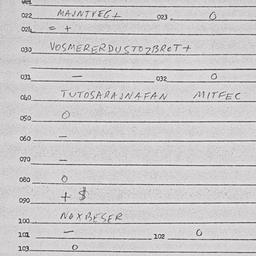 022 MAJNTFEG+ 023. 0
024 = +
030 VOSMERERDUSTOZBROT+
031 — 032 0
040 TUTOSARAJNAFAN MITFEC
050 0
060 —
070 —
080 0
090 + $
100 NOXBESER
101 — 102 0
103 0